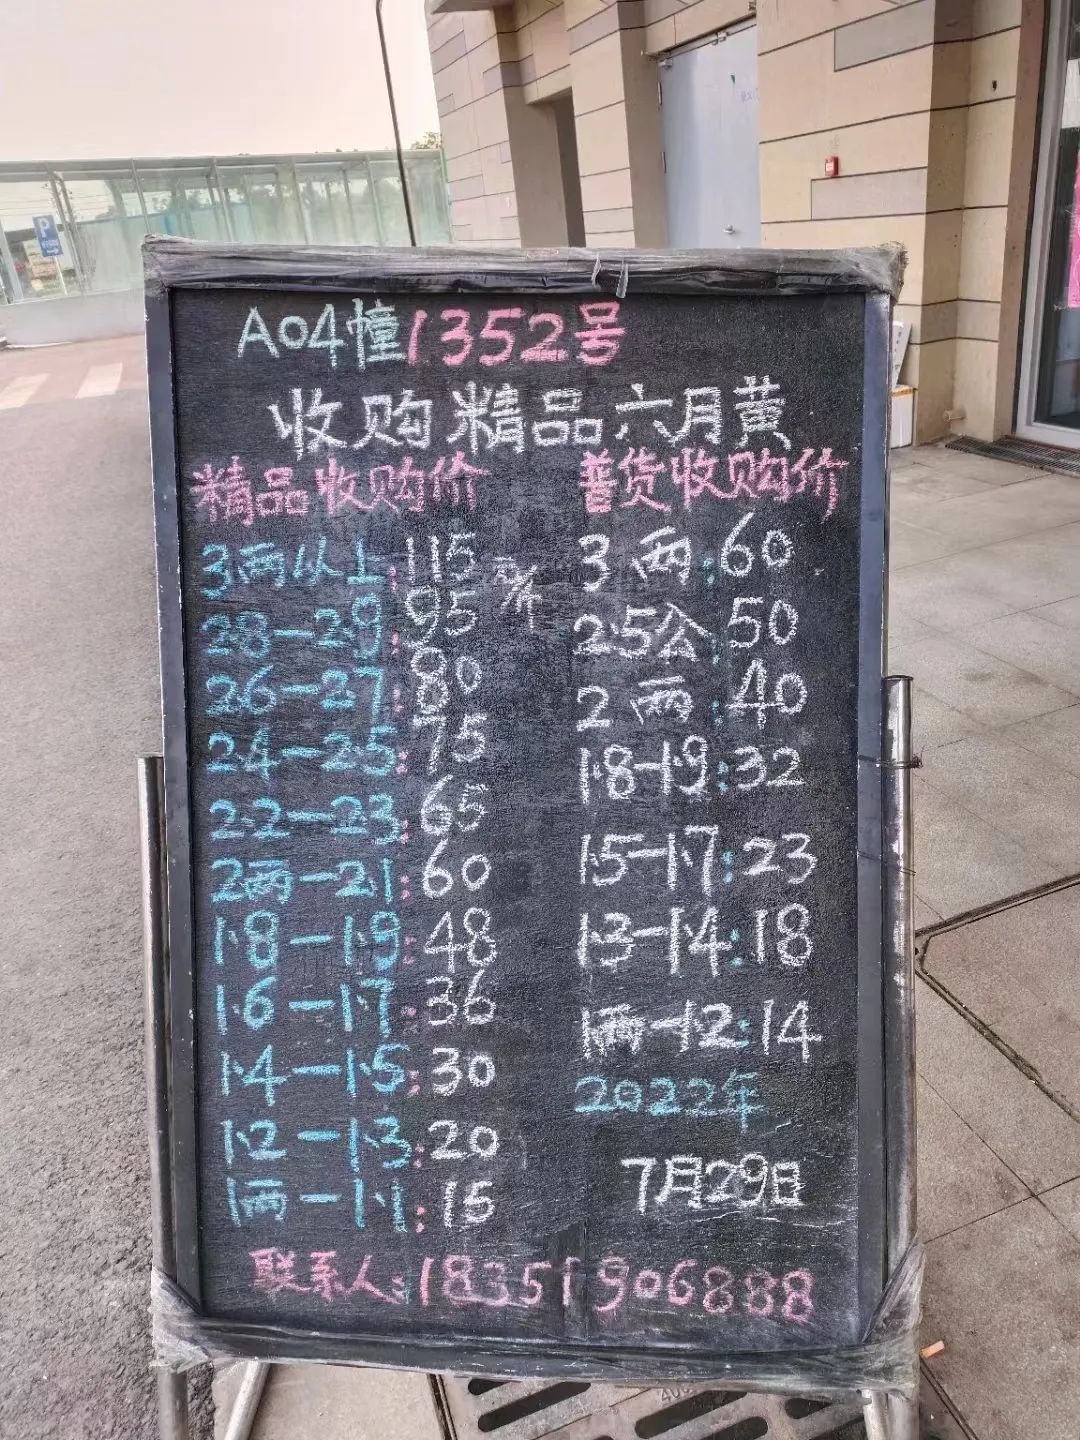 A04幢1352号
收购精品六月黄
精品收购价
3两以上:115元/斤
2.8-2.9:95
2.6-2.7:80
2.4-2.5:75
2.2-2.3:65
2两-2.1:60
1.8-1.9:48
1.6-1.7:36
1.4-1.5:30
1.2-1.3:20
1两-1.1:15
普货收购价
3两:60
2.5公:50
2两:40
1.8-1.9:32
1.5-1.7:23
1.3-1.4:18
1两-1.2:14
2022年
7月29日
联系人:18351906888
P